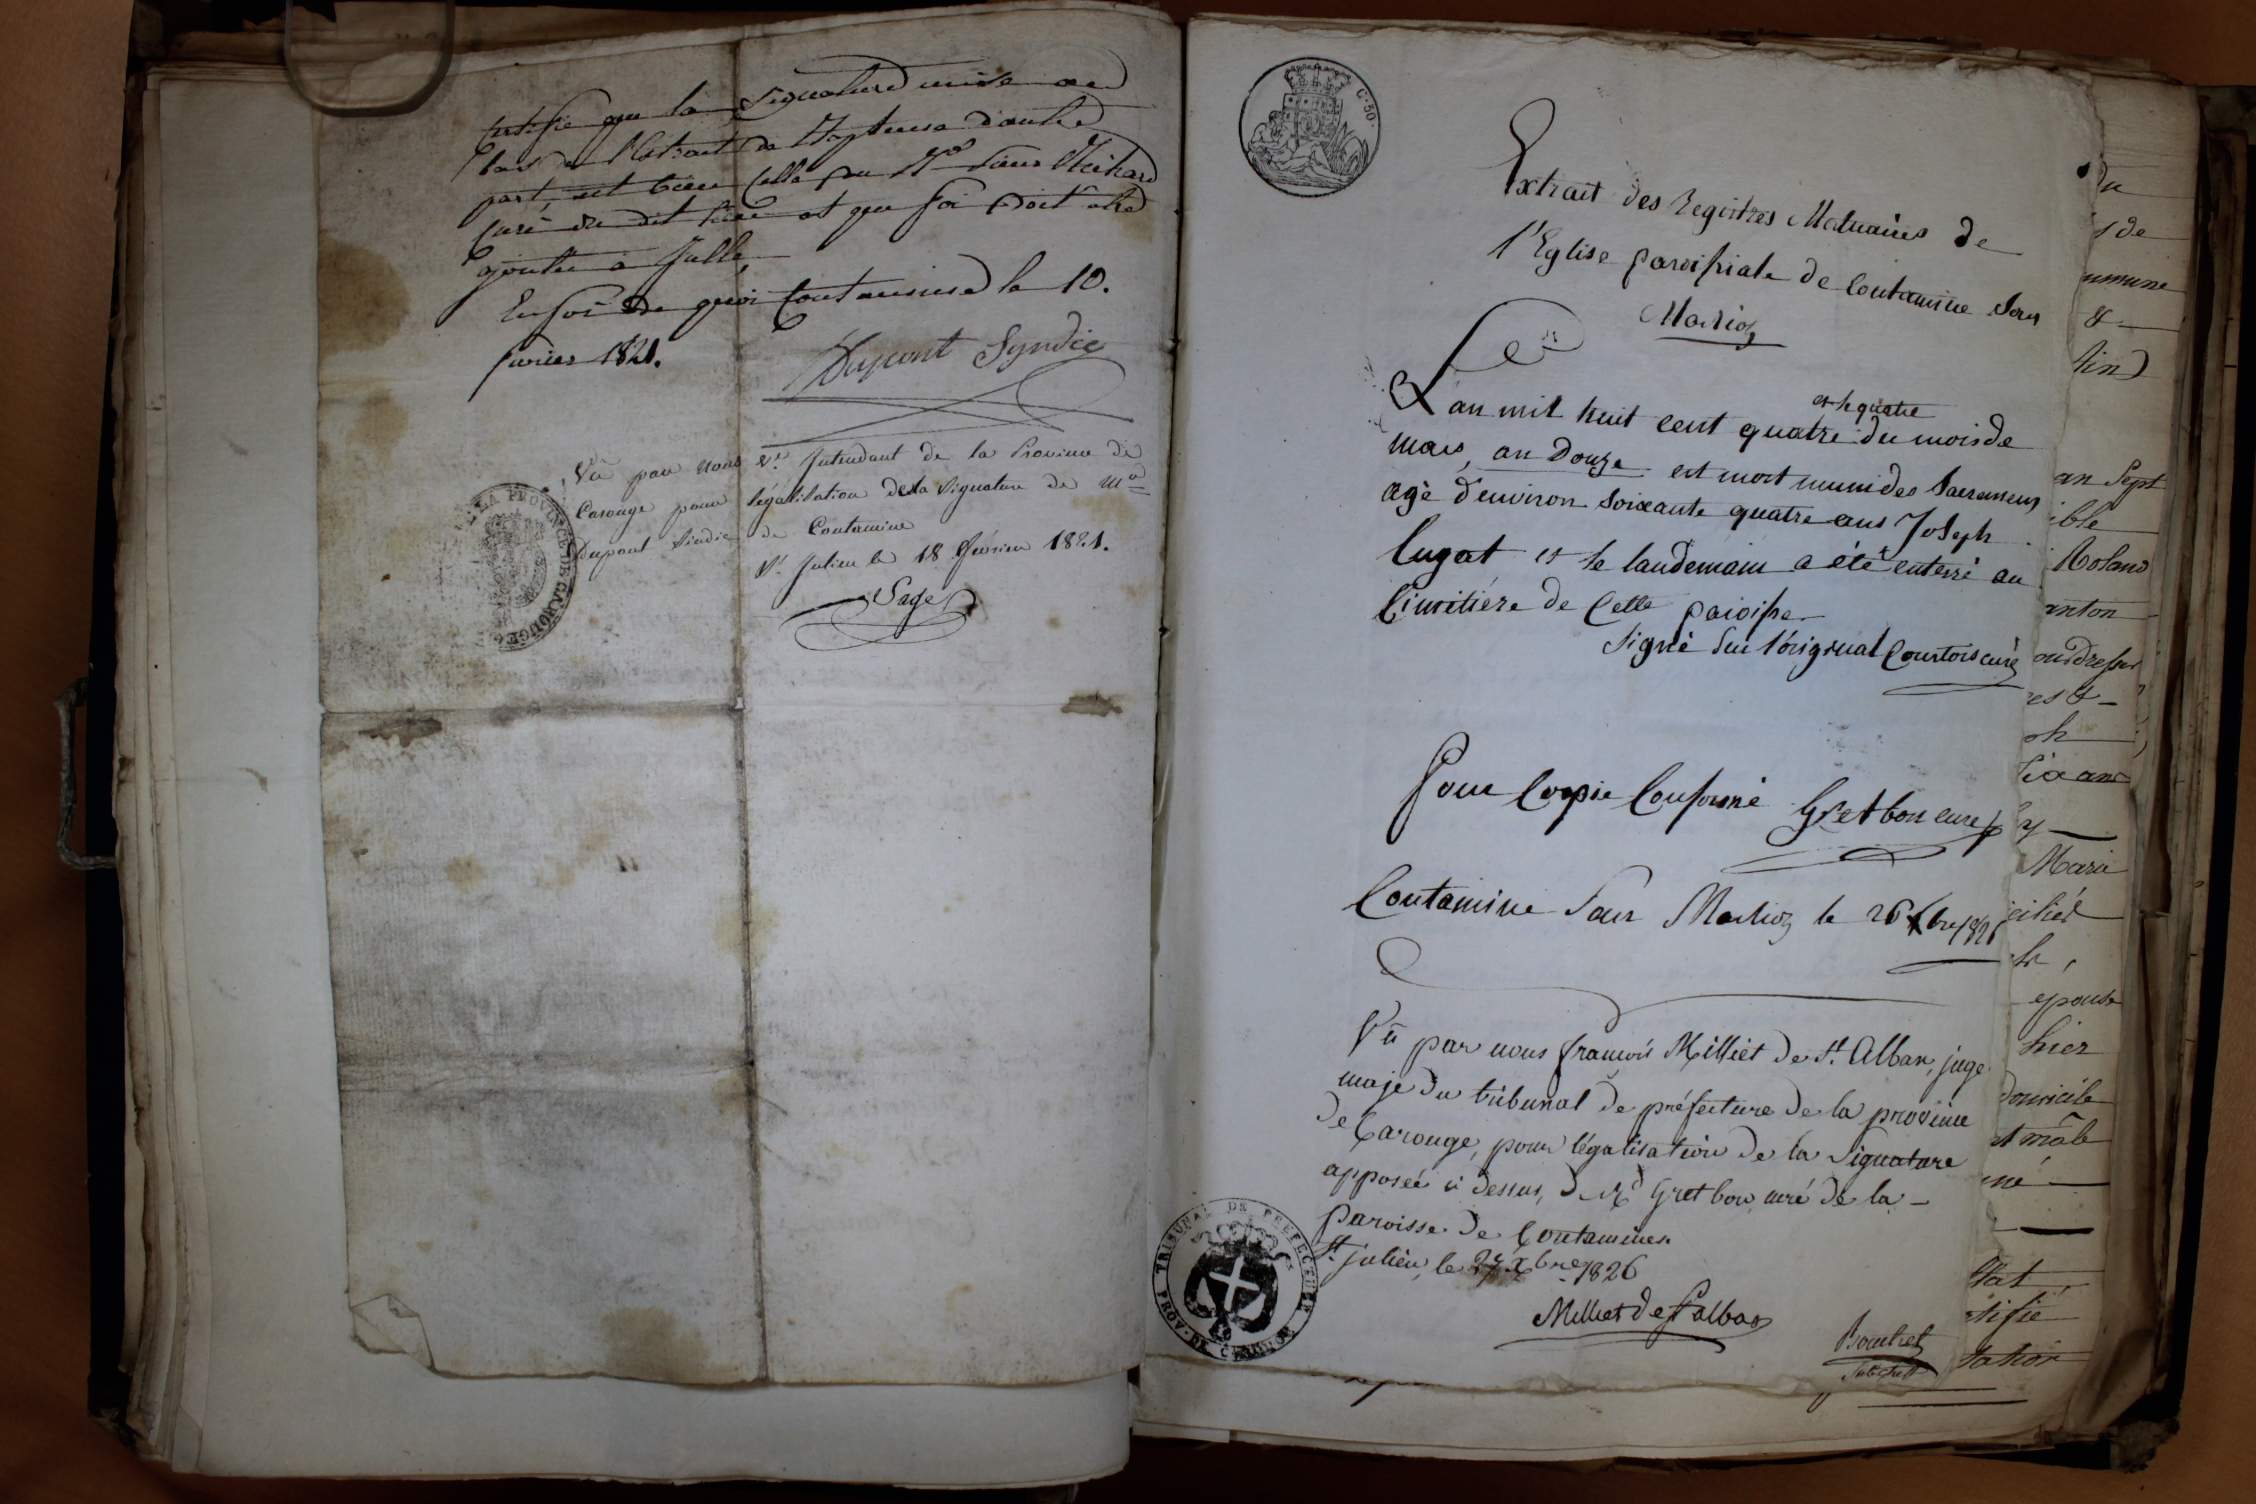 certifie que la signature mise au
bas de l'Extrait de Baptesme d'autre
part, est bien celle du Rd Sieur Michard
Curé du dit lieu et que foi doit etre
ajoutée a Icelle,
En foi de quoi Contamine le 10.
fevrier 1821.
Dupont Syndic
Vû par nous Vce Intendant de la Province de
Carouge pour légalisation de la signature de Mr
Dupont Sindic de Contamine
St Julien le 18 février 1821.
Sage
LA PROVINCE DE CAROUGE
C. 50.
Extrait des Registres Mortuaires de
l'Eglise paroissiale de Contamine Sous
Marlioz
et le quatre
L'an mil huit cent quatre du mois de
mars, an Douze est mort muni des Sacremens
agé d'environ soixante quatre ans Joseph
Cugat et le landemain a été enterré au
Cimitiére de Cette paroisse
Signé Sur l'original Courtois curé
Pour Copie Conforme Gretbon curé
Contamine Sous Marlioz le 26 Xbre 1826
Vû par nous françois Milliet de St. Alban, juge
maje du tribunal de préfecture de la province
de Carouge, pour légalisation de la Signature
apposée ci dessus, de Rd Gretbon curé de la
paroisse de Contamines.
St. julien, le 27 Xbre 1826
Milliet de St alban
TRIBUNAL DE PREFECTURE PROV. DE CAROUGE
du
s de
mmune
&
an Sept
ible
Roland
anton
es &
ph
ix ans
y
Marie
icilié
epouse
hier
domicile
né
tat
tifie
tation